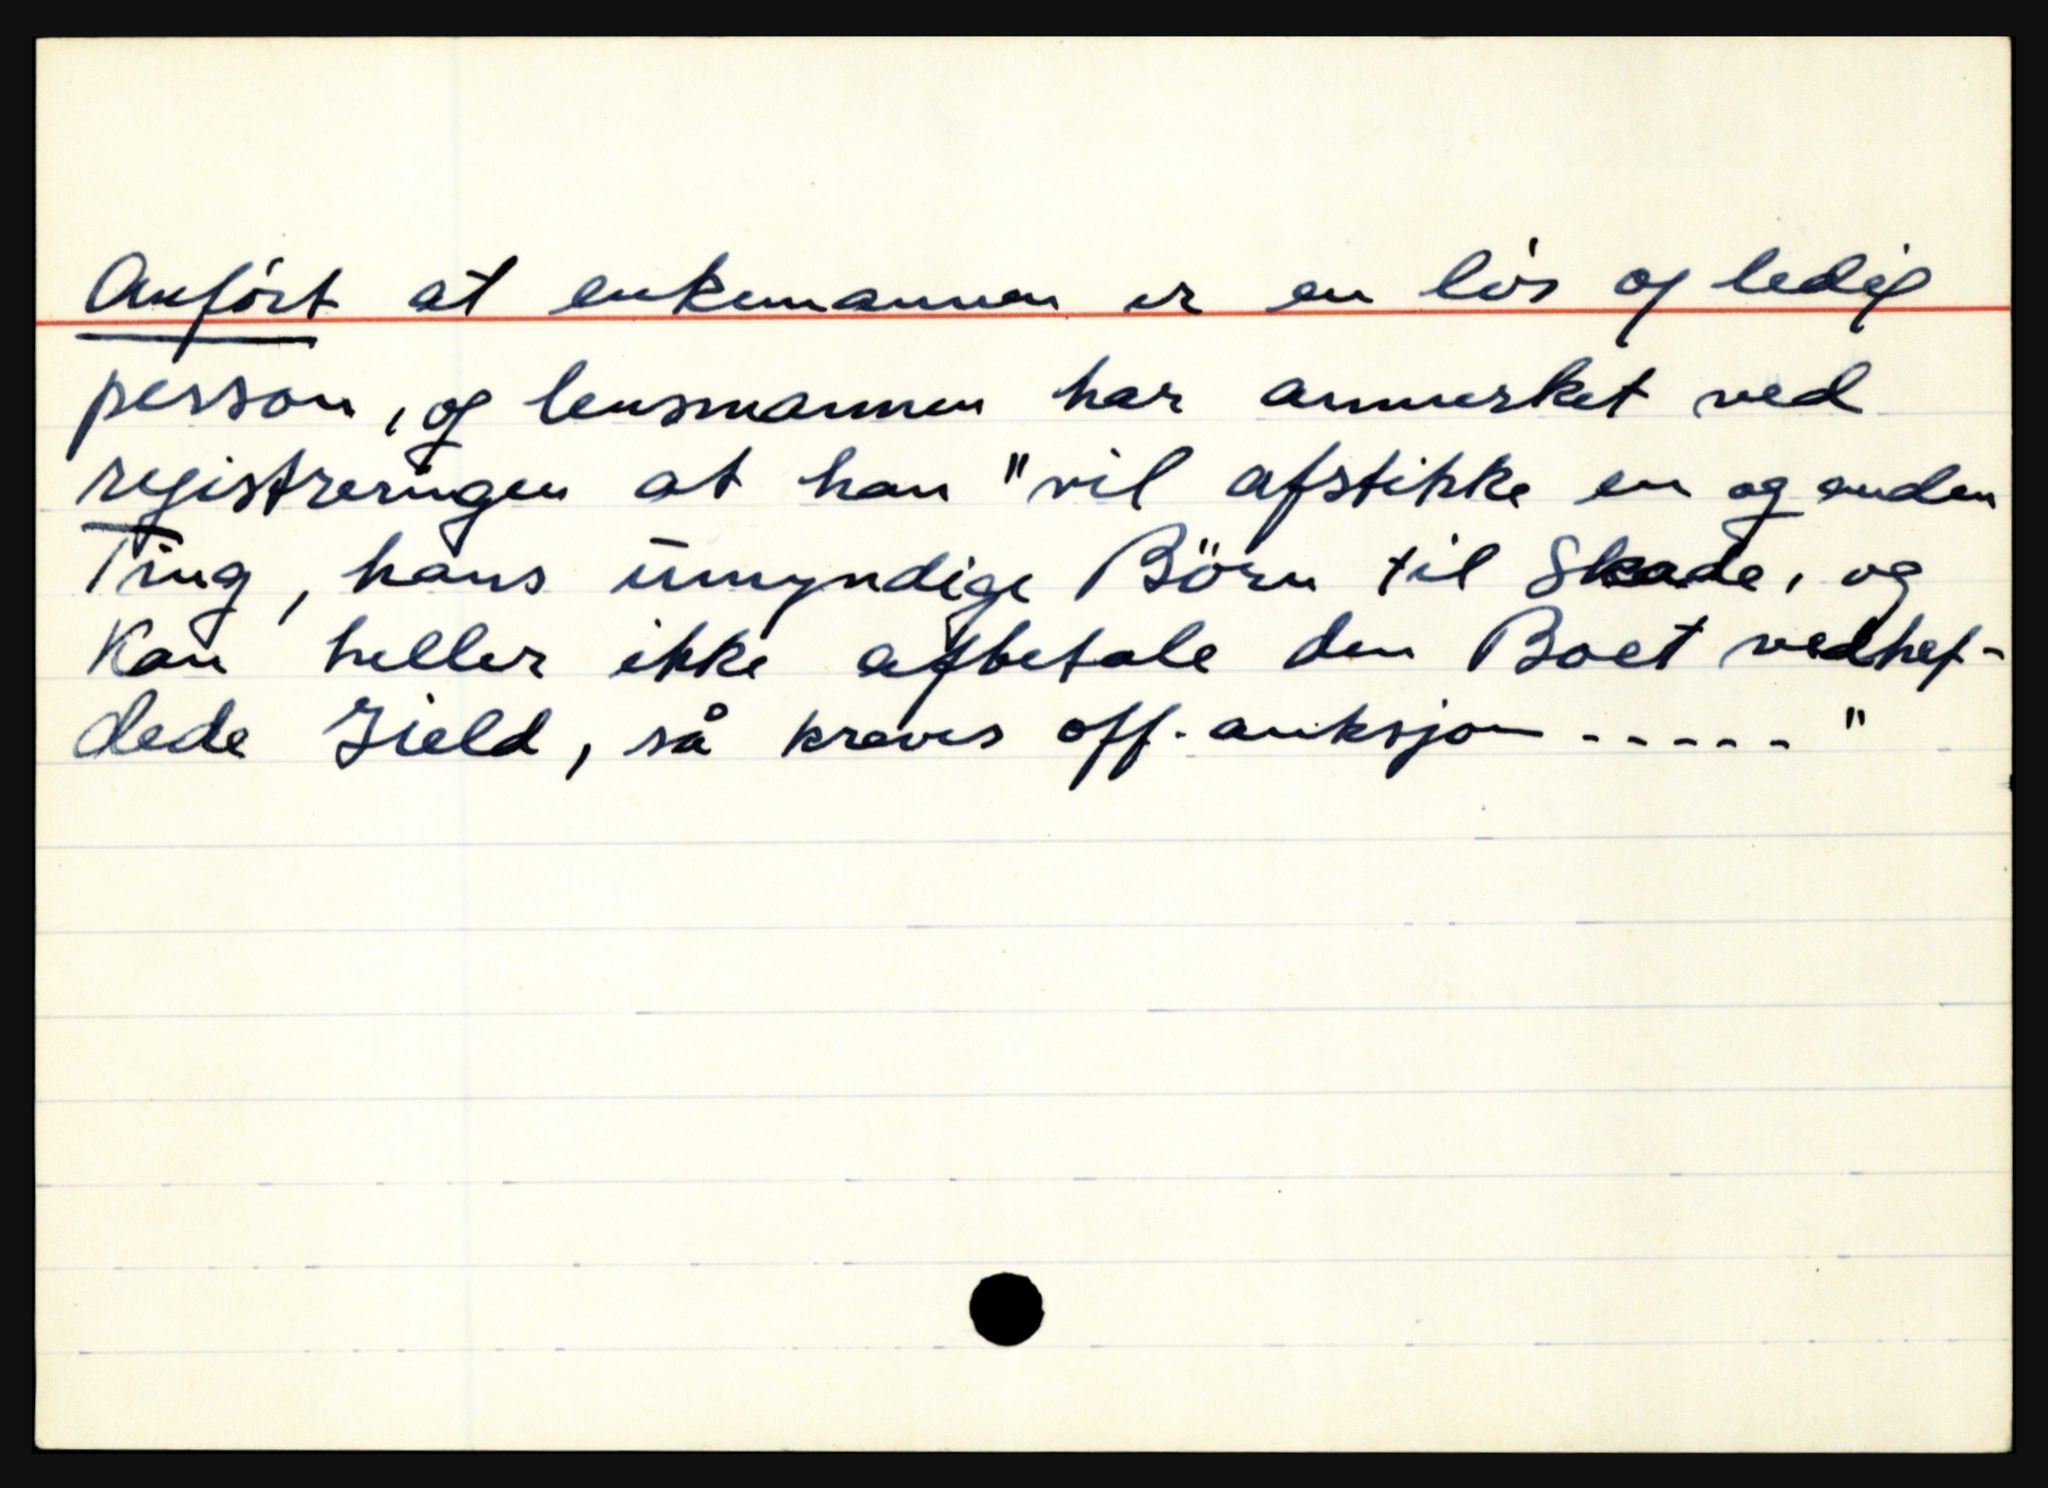 Anført at enkemannen er en løs og ledig
person, og lensmannen har anmerket ved
registreringen at han "vil afstikke en og anden
Ting, hans umyndige Börn til Skade, og
Kan heller ikke afbetale den Boet vedhef-
dede Gield, så kreves off. auksjon ------"